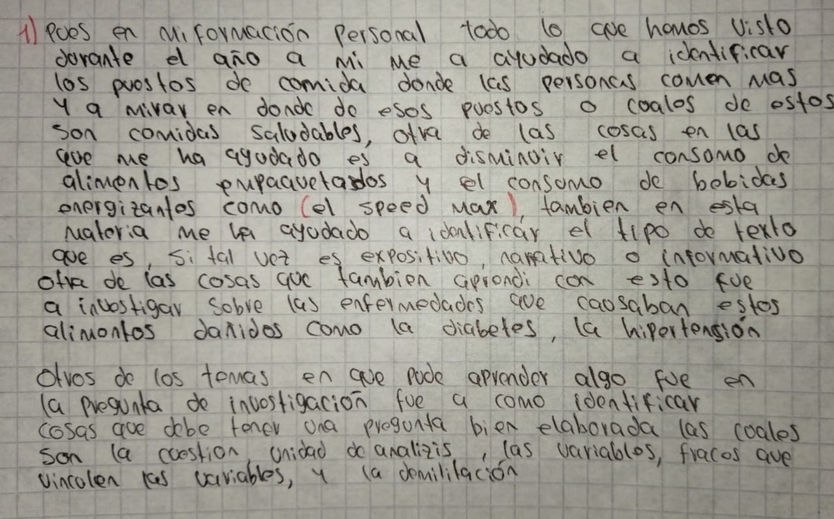 1) Pues en mi formación Personal todo lo que hemos visto
durante el año a mi me a ayudado a identificar
los puestos de comida donde las personas comen mas
y a mirar en donde de esos puestos o cuales de estos
son comidas saludables, otra de las cosas en las
que me ha ayudado es a disminuir el consumo de
alimentos empaquetados y el consumo de bebidas
energizantes como (el speed max), tambien en esta
materia me ha ayudado a identificar el tipo de texto
que es, si tal vez es expositivo, narrativo o informativo
otra de las cosas que tambien aprendi con esto fue
a investigar sobre las enfermedades que causaban estos
alimentos dañidos como la diabetes, la hipertensión
Otros de los temas en que pude aprender algo fue en
la pregunta de investigación fue a como identificar
cosas que debe tener una pregunta bien elaborada las cuales
son la cuestion, unidad de analizis, las variables, fraces que
vinculen las variables, y la demilitación